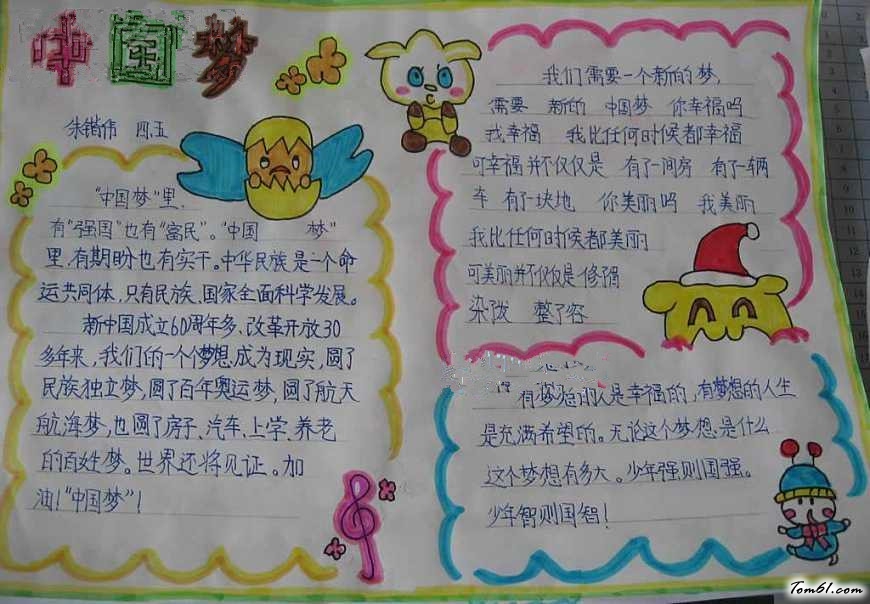 中国梦
朱锴伟 四.五
“中国梦”里,
有“强国”也有“富民”。“中国 梦”
里,有期盼也有实干。中华民族是一个命
运共同体,只有民族、国家全面科学发展。
新中国成立60周年多、改革开放30
多年来,我们的一个个梦想成为现实,圆了
民族独立梦,圆了百年奥运梦,圆了航天
航海梦,也圆了房子、汽车、上学、养老
的百姓梦。世界还将见证。加
油!“中国梦”!
我们需要一个新的梦,
需要 新的 中国梦 你幸福吗
我幸福 我比任何时候都幸福
可幸福并不仅仅是 有了一间房 有了一辆
车 有了一块地 你美丽吗 我美丽
我比任何时候都美丽
可美丽并不仅仅是修眉
染 整了容
有梦想的人是幸福的,有梦想的人生
是充满希望的。无论这个梦想是什么
这个梦想有多大。少年强则国强。
少年智则国智!
Tom61.com